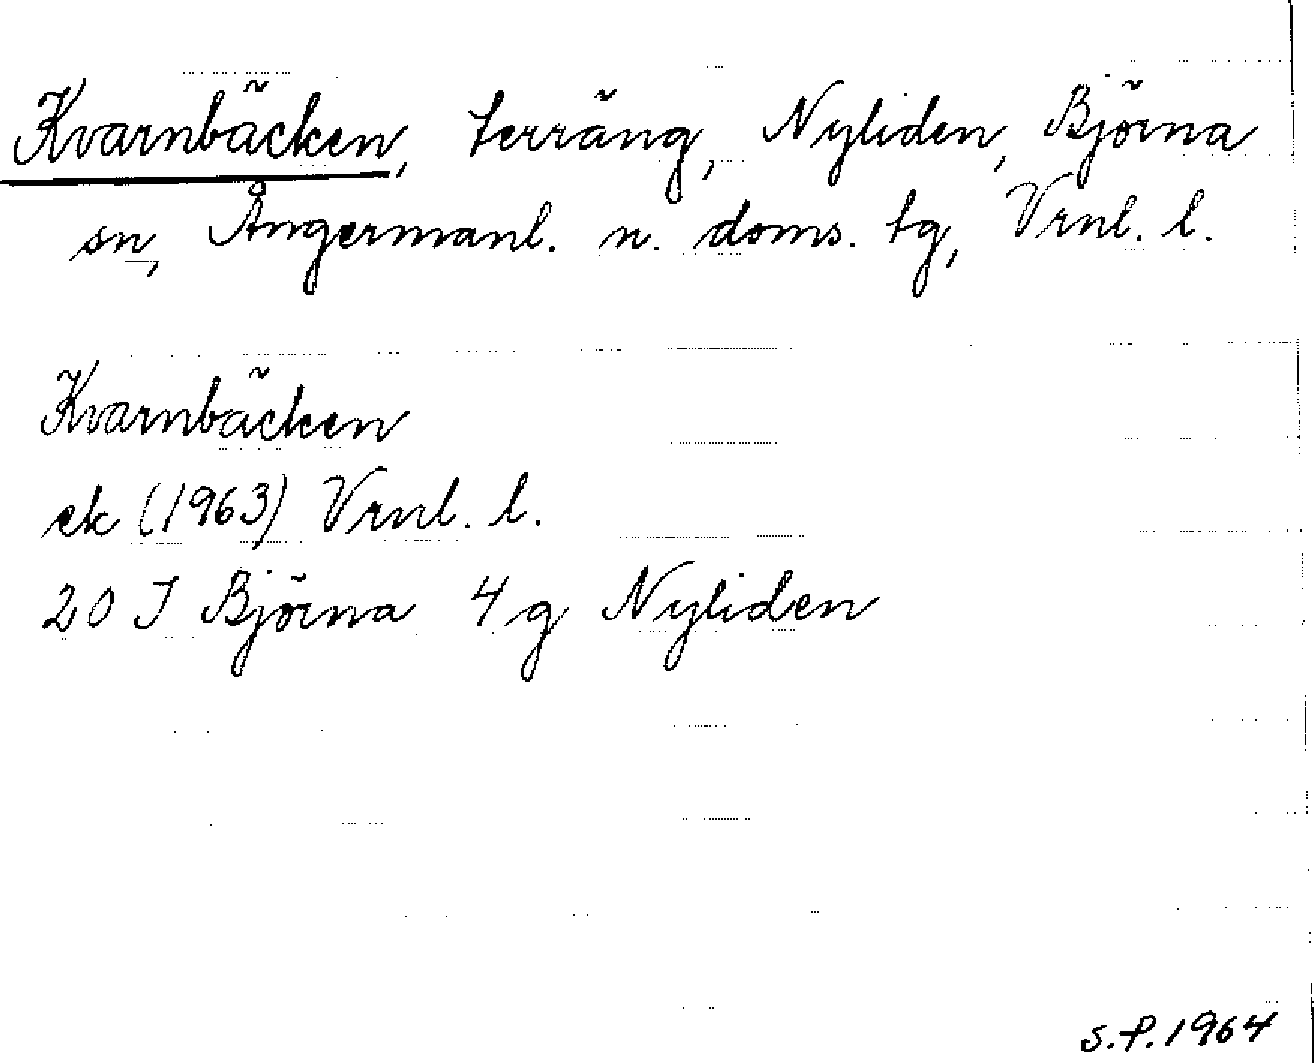 Kvarnbäcken, terräng, Nyliden, Björna
sn, Ångermanl. n. doms. tg, Vrnl. l.
Kvarnbäcken
ek (1963) Vrnl. l.
20 J Björna 4 g Nyliden
S.P. 1964